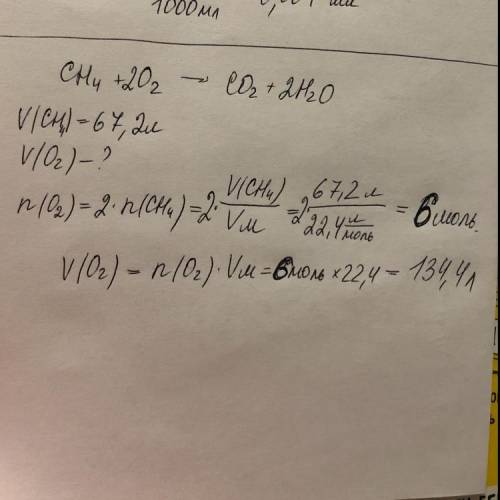 1000мл
CH₄ + 2O₂ → CO₂ + 2H₂O
V(CH₄) = 67,2л
V(O₂) – ?
n(O₂) = 2 · n(CH₄) = 2 · V(CH₄) / Vм = 2 · 67,2 л / 22,4 л/моль = 6 моль.
V(O₂) = n(O₂) · Vм = 6 моль × 22,4 = 134,4л